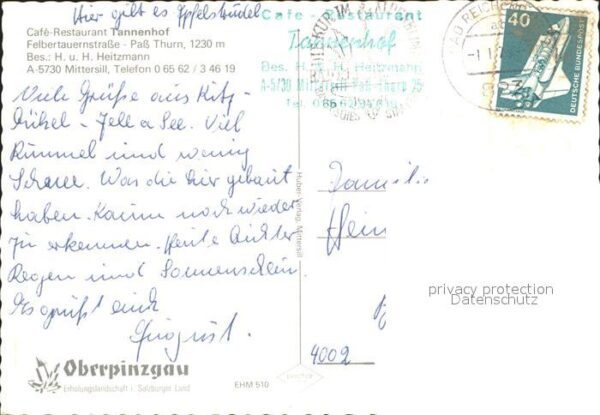 Hier gibt es Apfelstrudel
Café-Restaurant Tannenhof
Felbertauernstraße - Paß Thurn, 1230 m
Bes.: H. u. H. Heitzmann
A-5730 Mittersill, Telefon 0 65 62 / 3 46 19
Cafe - Restaurant
Tannenhof
Bes. H. H. Heitzmann
A-5730 Mittersill Paß Thurn 25
Tel.
BAD REICHENHALL
40
DEUTSCHE BUNDESPOST
Viele Grüße aus Kitz-
bühel - Zell a See. Viel
Rummel und wenig
Schnee. Was die hier gebaut
haben. Kaum noch wieder
zu erkennen. Heute
Regen und Sonnenschein
Es grüßt euch
August.
Familie
Hein
4002
Huber Verlag, Mittersill
privacy protection
Datenschutz
Oberpinzgau
Erholungslandschaft i. Salzburger Land
EHM 510